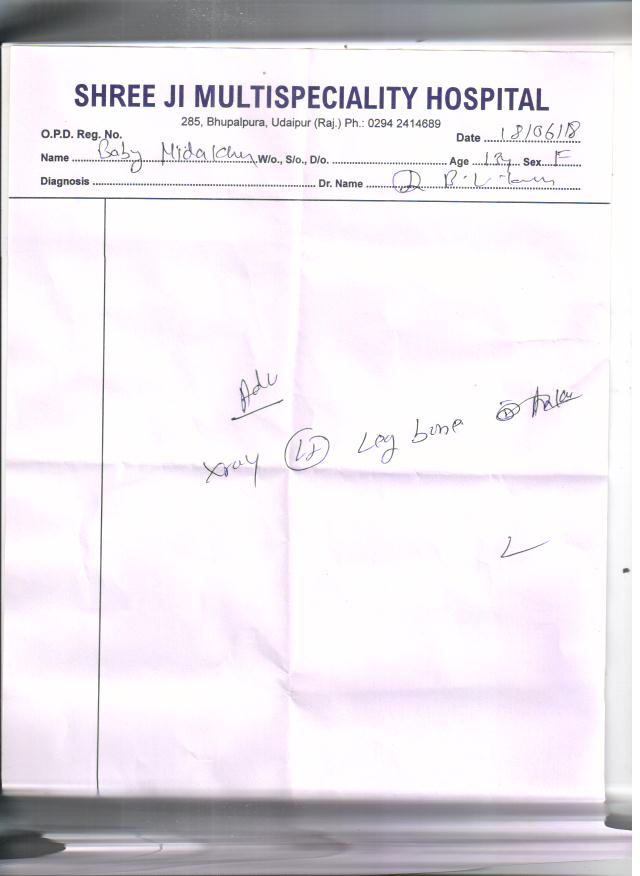 SHREE JI MULTISPECIALITY HOSPITAL
285, Bhupalpura, Udaipur (Raj.) Ph.: 0294 2414689
O.P.D. Reg. No.
Date 18/06/18
Name Baby W/o., S/o., D/o. Age Sex F
Diagnosis Dr. Name
Adv
Xray Lt Leg bone